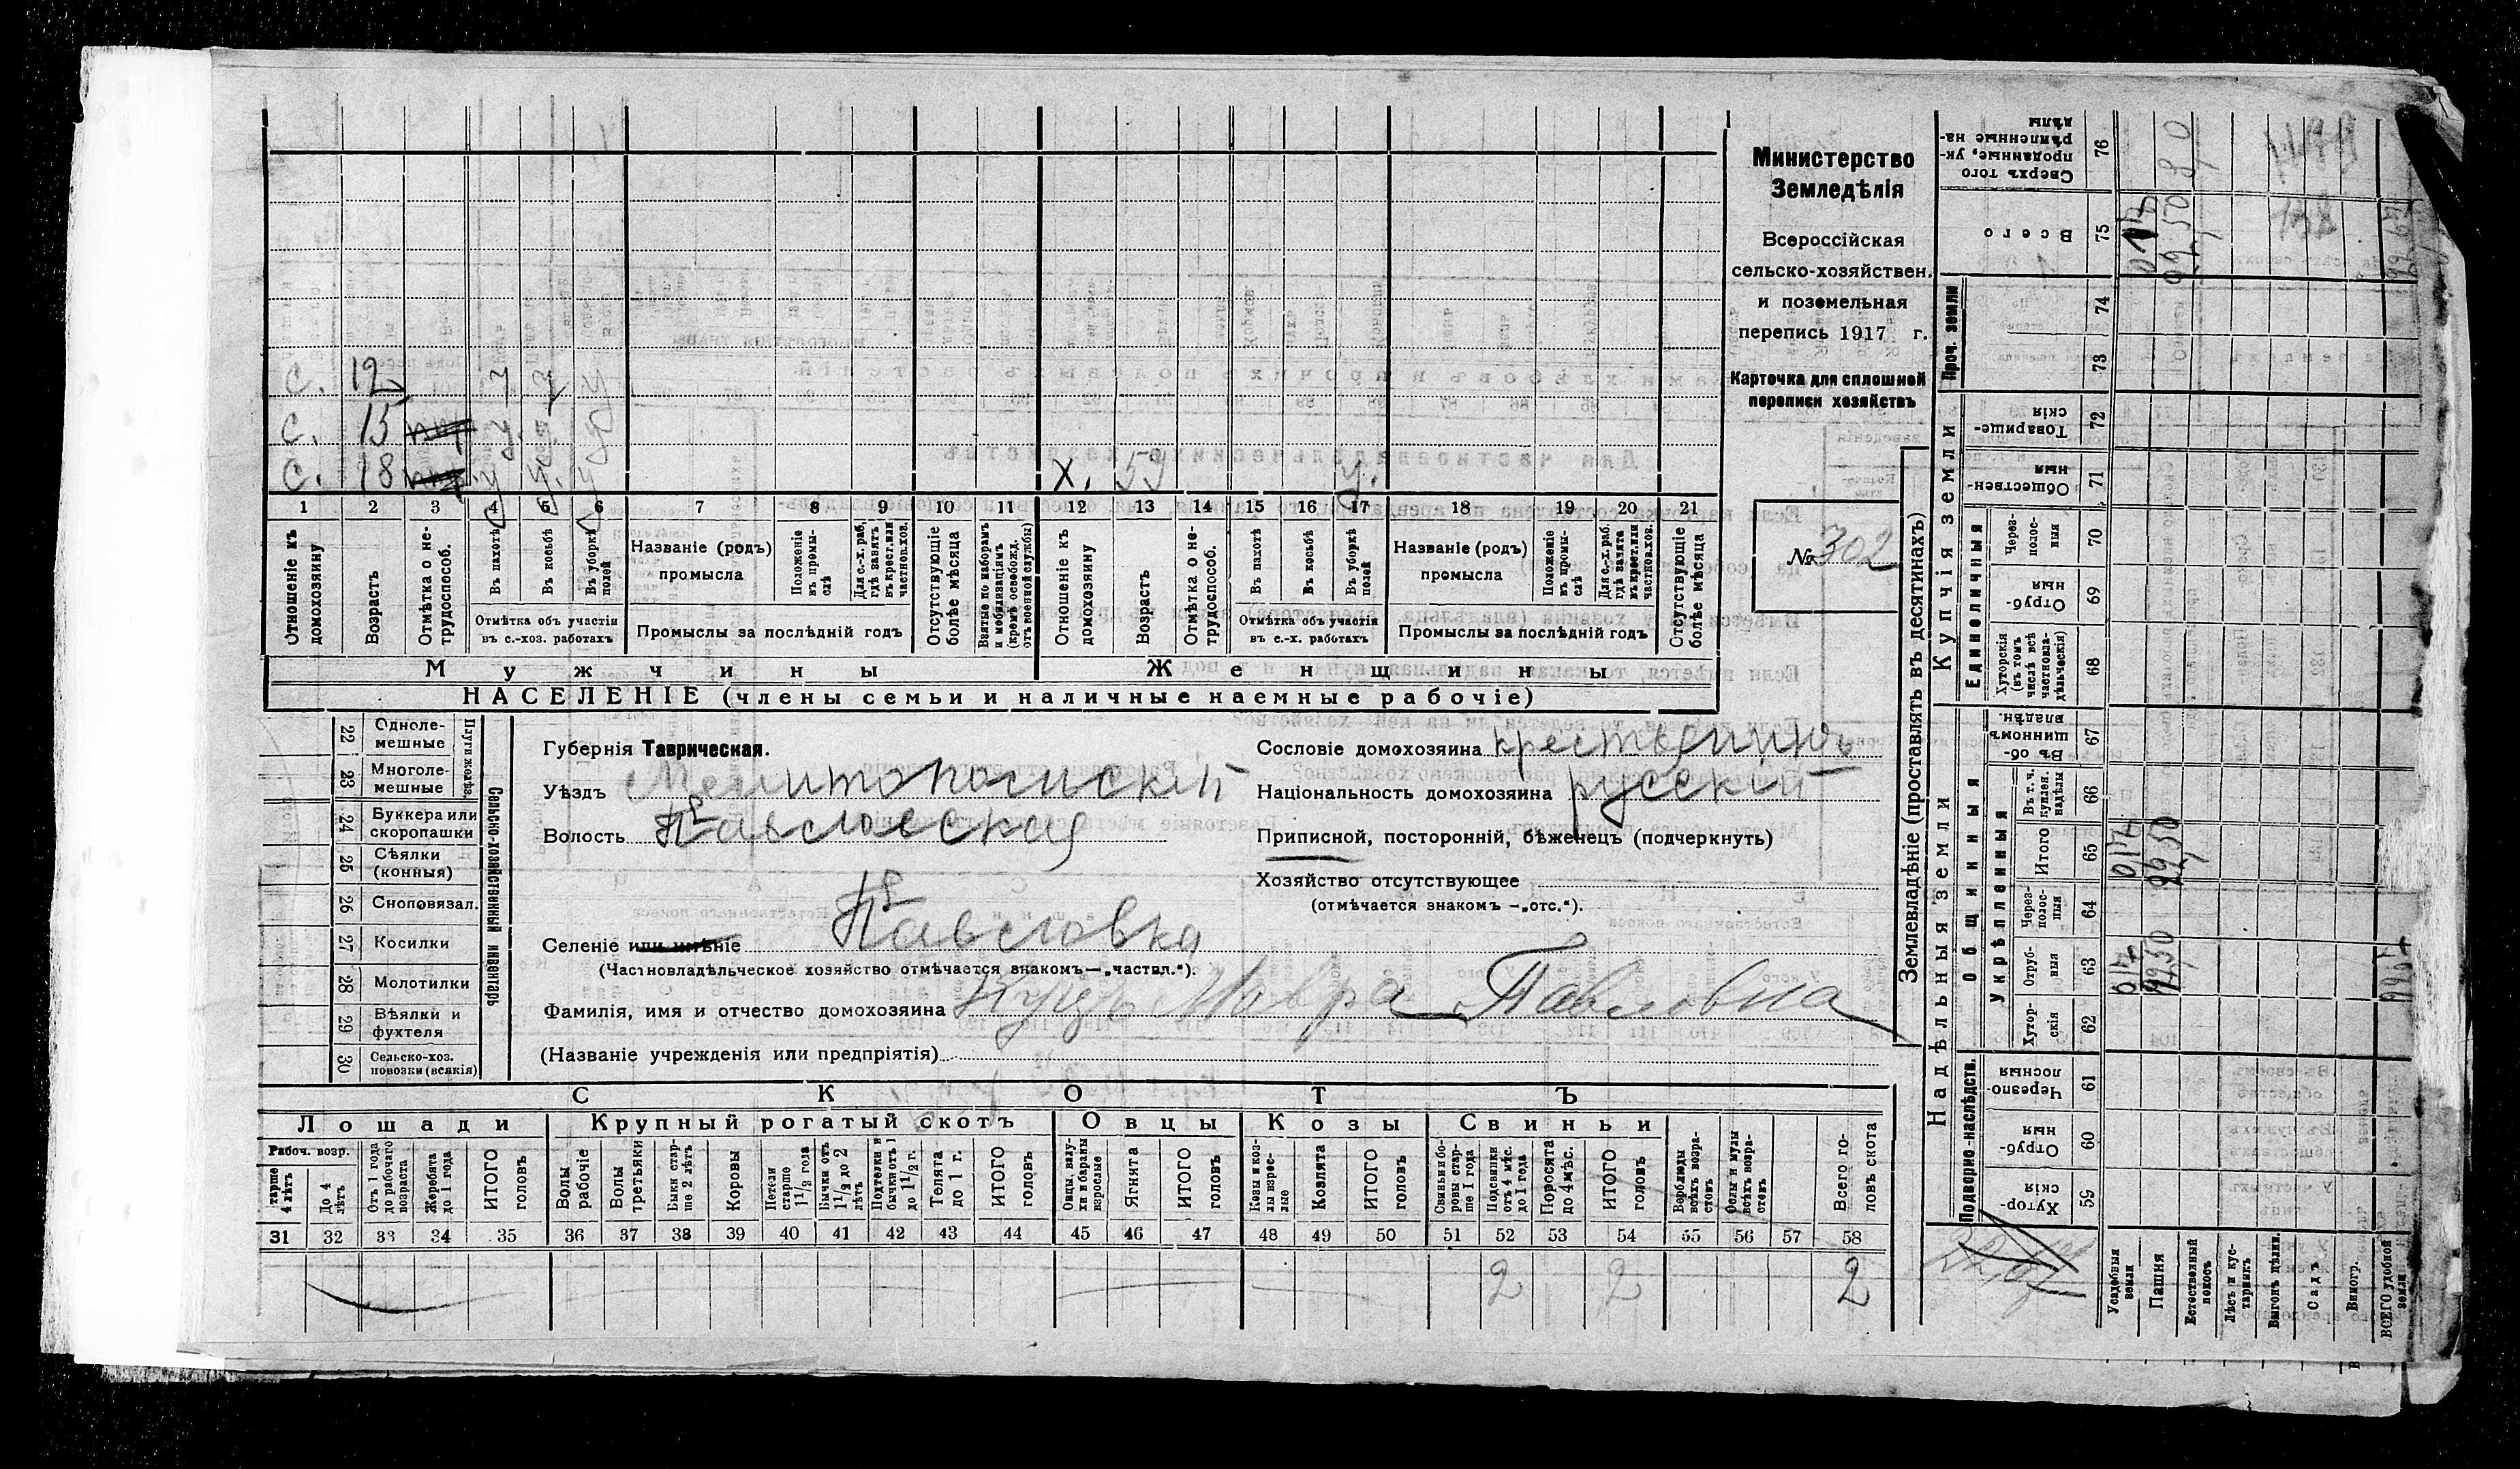 с. 12 у у у
с. 15 у. у. у
с. 18 у у. у х. 53 у.
1 2 3 4 5 6 7 8 9 10 11 12 13 14 15 16 17 18 19 20 21
Отношеніе къ домохозяину
Возрастъ
Отмѣтка о нетрудоспособ.
Въ пахотѣ
Въ косьбѣ
Въ уборкѣ полей
Отмѣтка объ участіи въ с.-хоз. работахъ
Названіе (родъ) промысла
Положеніе въ промыслѣ
Для с.-х. раб. гдѣ занятъ въ крест. или частнов. хоз.
Промыслы за послѣдній годъ
Отсутствующіе болѣе мѣсяца
Взятые по наборамъ и мобилизаціямъ (кромѣ освобожд. отъ военной службы)
Отношеніе къ домохозяину
Возрастъ
Отмѣтка о нетрудоспособ.
Въ пахотѣ
Въ косьбѣ
Въ уборкѣ полей
Отмѣтка объ участіи въ с.-х. работахъ
Названіе (родъ) промысла
Положеніе въ промыслѣ
Для с.-х. раб. гдѣ занята въ крест. или частнов. хоз.
Промыслы за послѣдній годъ
Отсутствующіе болѣе мѣсяца
Мужчины Женщины
НАСЕЛЕНІЕ (члены семьи и наличные наемные рабочіе)
Министерство
Земледѣлія
Всероссійская
сельско-хозяйствен.
и поземельная
перепись 1917 г.
Карточка для сплошной
переписи хозяйствъ
№ 302
22 Однолемешные
23 Многолемешные
Плуги желѣз.
24 Буккера или скоропашки
25 Сѣялки (конныя)
26 Сноповязал.
27 Косилки
28 Молотилки
29 Вѣялки и фухтеля
30 Сельско-хоз. повозки (всякія)
Сельско-хозяйственный инвентарь
Губернія Таврическая.
Уѣздъ Мелитопольскій
Волость Павловская
Селеніе или имѣніе Павловка
(Частновладѣльческое хозяйство отмѣчается знакомъ—„частвл.“).
Фамилія, имя и отчество домохозяина Куцъ Мавра Павловна
(Названіе учрежденія или предпріятія)
Сословіе домохозяина крестьянинъ
Національность домохозяина русскій
Приписной, посторонній, бѣженецъ (подчеркнуть)
Хозяйство отсутствующее
(отмѣчается знакомъ —„отс.“).
СКОТЪ
Лошади Крупный рогатый скотъ Овцы Козы Свиньи
Рабоч. возр.
тарше 4 лѣтъ
До 4 лѣтъ
Отъ 1 года до рабочаго возраста
Жеребята до 1 года
ИТОГО головъ
Волы рабочіе
Волы третьяки
Быки старше 2 лѣтъ
Коровы
Нетели старше 1 1/2 года
Бычки отъ 1 1/2 до 2 лѣтъ
Подтелки и бычки отъ 1 до 1 1/2 г.
Телята до 1 г.
ИТОГО головъ
Овцы, валухи и бараны взрослые
Ягнята
ИТОГО головъ
Козы и козлы взрослые
Козлята
ИТОГО головъ
Свиньи боровы старше 1 года
Подсвинки отъ 4 мѣс. до 1 года
Поросята до 4 мѣс.
ИТОГО головъ
Верблюды всѣхъ возрастовъ
Ослы и мулы всѣхъ возрастовъ
Всего головъ скота
31 32 33 34 35 36 37 38 39 40 41 42 43 44 45 46 47 48 49 50 51 52 53 54 55 56 57 58
2 2 2
Землевладѣніе (проставлять въ десятинахъ)
Купчія земли
Надѣльныя земли
Проч. земли
Единоличныя
Общинныя
Укрѣпленныя
Подворно-наслѣдств.
Сверхъ того проданные, укрѣпленные надѣлы 76
Всего 75 017 99,50
74
73
Товарищескія 72
Общественныя 71
Черезполосныя 70
Отрубныя 69
Хуторскія (въ томъ числѣ всѣ частновладѣльческія) 68
Въ общинномъ владѣн. 67
Въ т. ч. куплен. надѣлы 66
Итого 65 017 99,50
Черезполосныя 64
Отрубныя 63 017 99,50
Хуторскія 62
Черезполосныя 61
Отрубныя 60
Хуторскія 59
Усадебныя земли
Пашня
Естественный покосъ
Лѣсъ и кустарникъ
Выгонъ цѣлин.
Садъ
Виногр.
ВСЕГО удобной земли